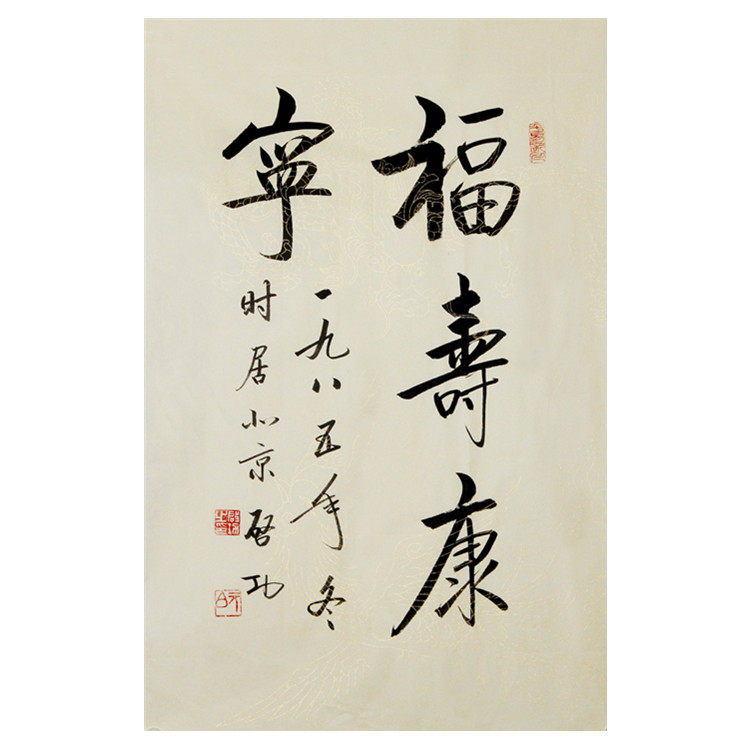 福壽康
寧
一九八五年冬
时居北京 启功